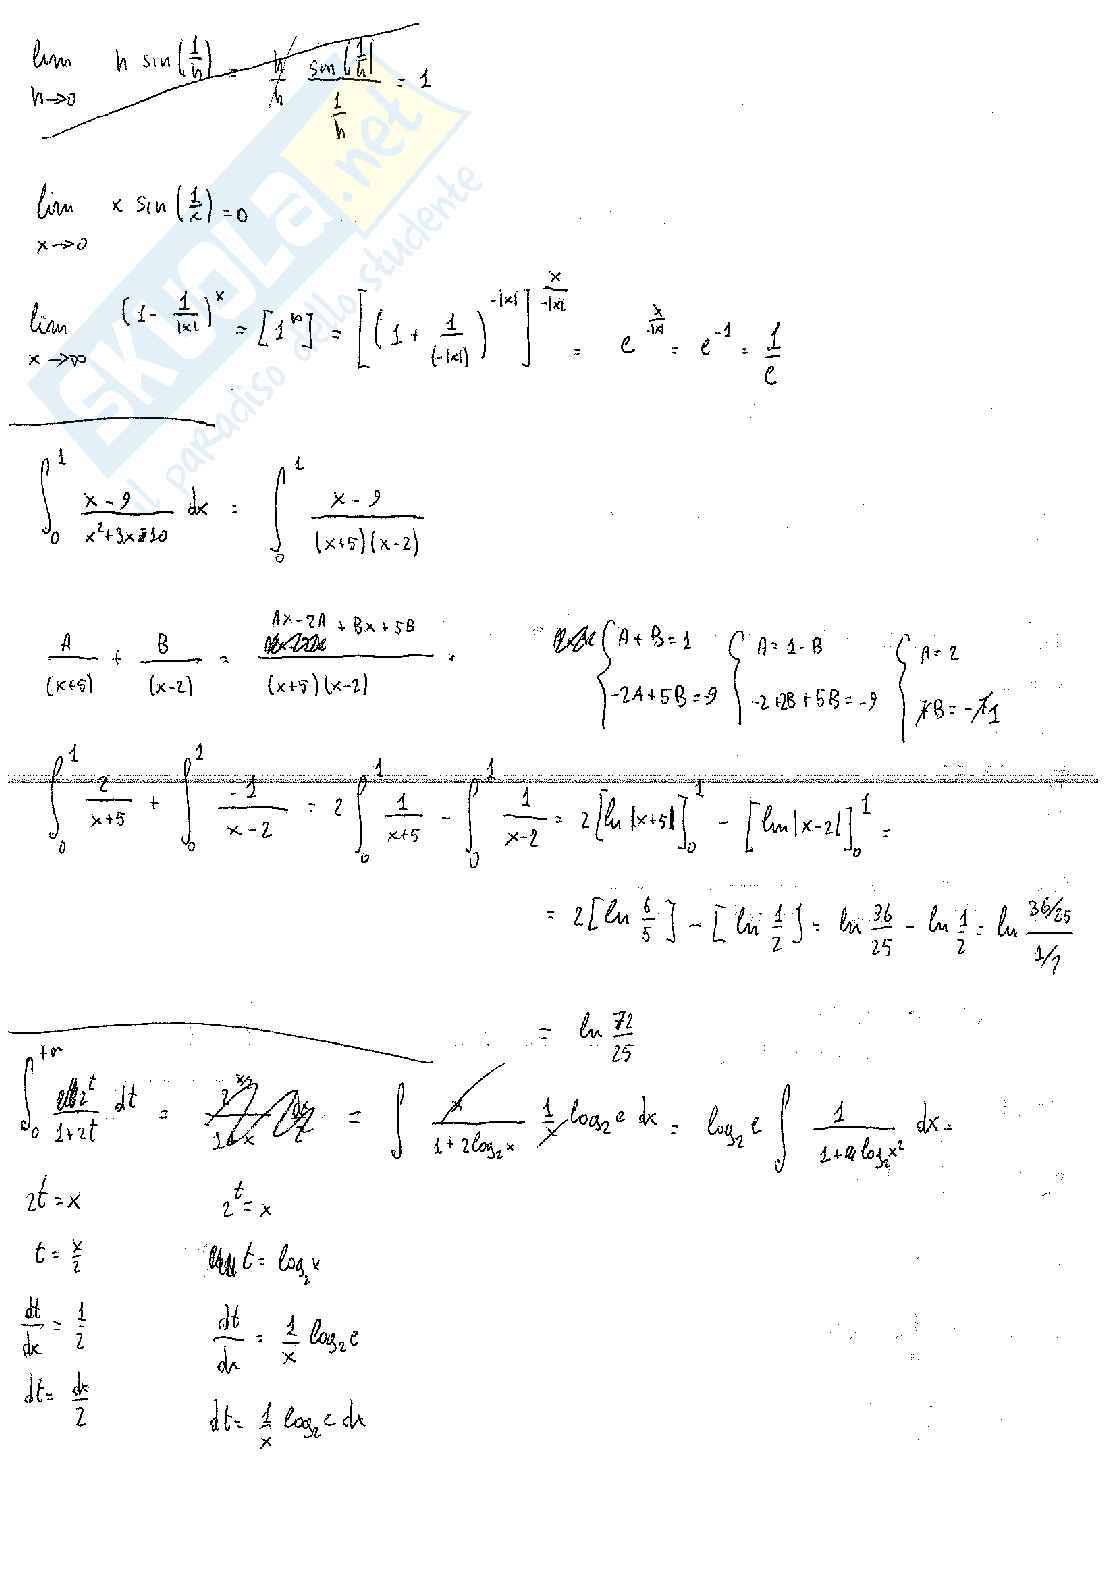 lim h sin(1/h) = h/h sin(1/h)/(1/h) = 1
h→0
lim x sin(1/x) = 0
x→0
lim (1 - 1/|x|)^x = [1^∞] = [(1 + 1/(-|x|))^(-|x|)]^(x/(-|x|)) = e^(x/-|x|) = e^-1 = 1/e
x→∞
∫_0^1 (x-9)/(x²+3x-10) dx = ∫_0^1 (x-9)/((x+5)(x-2))
A/(x+5) + B/(x-2) = (Ax-2A+Bx+5B)/((x+5)(x-2)) { A+B=1 { A=1-B { A=2
-2A+5B=-9 -2+2B+5B=-9 7B=-7 1
∫_0^1 2/(x+5) + ∫_0^2 -1/(x-2) = 2∫_0^1 1/(x+5) - ∫_0^1 1/(x-2) = 2[ln|x+5|]_0^1 - [ln|x-2|]_0^1 =
= 2[ln 6/5] - [ln 1/2] = ln 36/25 - ln 1/2 = ln (36/25)/(1/2)
= ln 72/25
∫_0^+∞ 2^t/(1+2t) dt = = ∫ x/(1+2log₂x) 1/x log₂e dx = log₂e ∫ 1/(1+log₂x²) dx =
2t = x 2^t = x
t = x/2 t = log₂x
dt/dx = 1/2 dt/dx = 1/x log₂e
dt = dx/2 dt = 1/x log₂e dx
SKUOLA.net
il paradiso dello studente